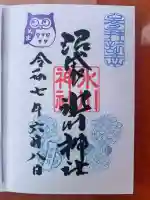 沼袋氷川神社
氷川
神社
令和七年六月八日